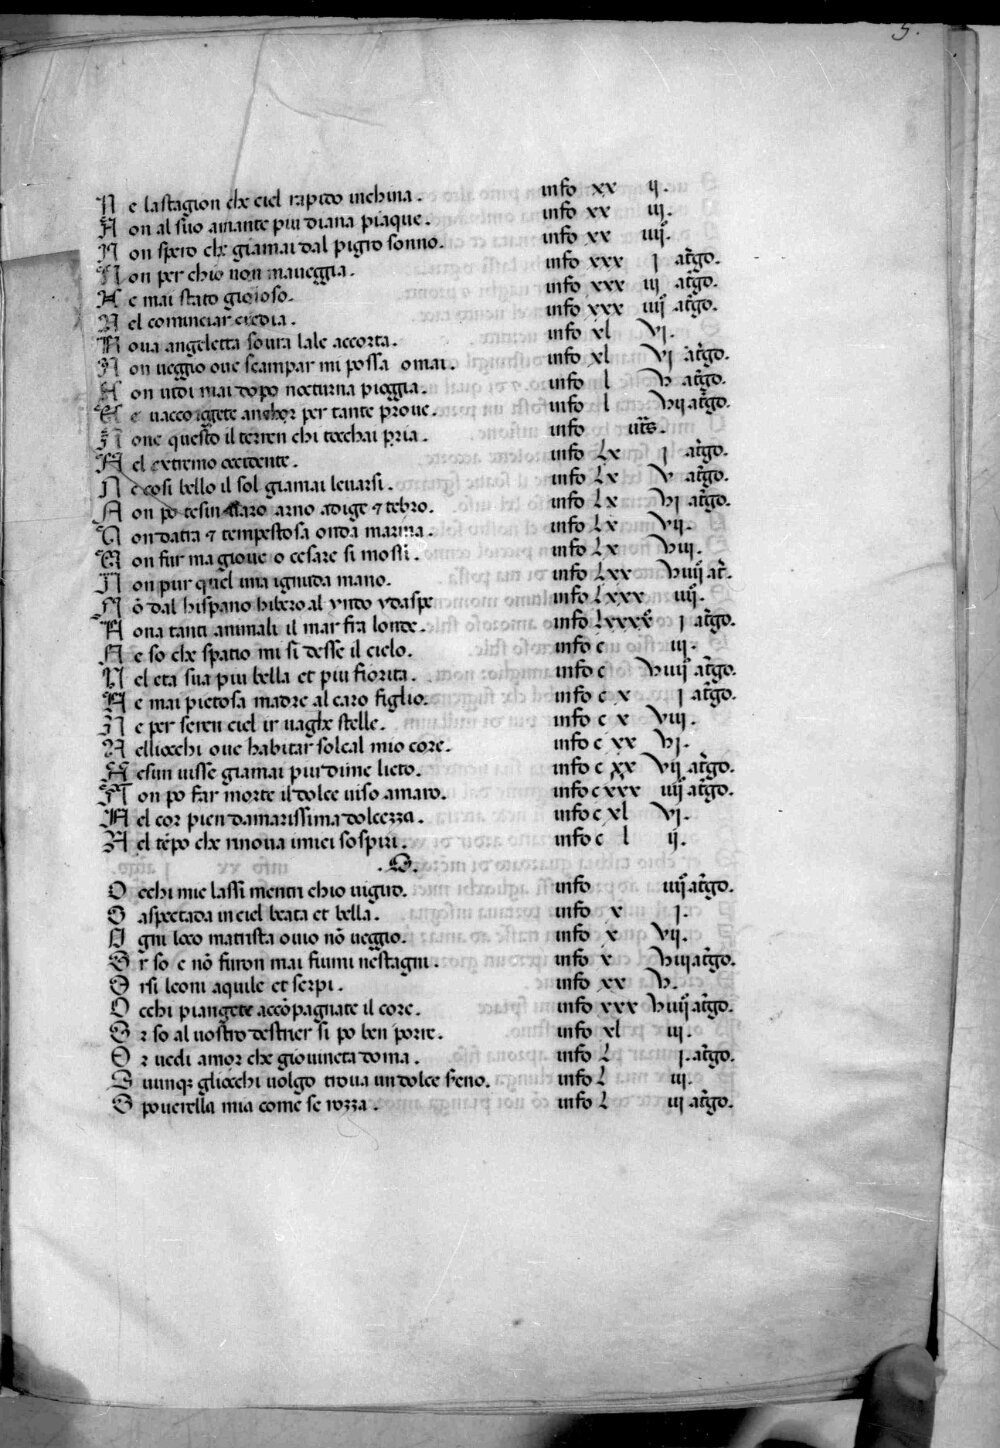 5.
N e la stagion che ciel rapido inchina . info xx ij .
N on al suo amante piu diana piaque . info xx iij .
N on spero che giamai dal pigro sonno . info xx iiij .
N on per chio non maueggia . info xxx j atergo .
N e mai stato gioioso . info xxx iij atergo .
N el cominciar credia . info xxx iiij atergo .
N oua angeletta soura lale accorta . info xl vi .
N on ueggio oue scampar mi possa omai . info xl vi atergo .
N on uidi mai dopo nocturna pioggia . info l v atergo .
N e uaccorgete anchor per tante proue . info l vij atergo .
N one questo il terren chi tocchai pria . info
N el extremo occidente . info Lx j atergo .
N e cosi bello il sol giamai leuarsi . info Lx v atergo .
N on po tesin uaro arno adige & tebro . info Lx vi atergo .
N on datra & tempestosa onda marina . info Lx vij .
N on fur ma gioue o cesare si mossi . info Lx viij .
N on pur quel una ignuda mano . info Lxx viiij at .
N ō dal hispano hibero al yndo ydaspe info Lxxx iiij .
N ona tanti animali il mar fra londe . info Lxxxx j atergo .
N e so che spatio mi si desse il cielo . info c iij .
N el eta sua piu bella et piu fiorita . info c viiij atergo .
N e mai pietosa madre al caro figlio . info c x j atergo .
N e per seren ciel ir uaghe stelle . info c x viij .
N elliocchi oue habitar solcal mio core . info c xx vi .
N esun uisse giamai piu di me lieto . info c xx vij atergo .
N on po far morte il dolce uiso amaro . info c xxx iiij atergo .
N el cor pien damarissima dolcezza . info c xl vi .
N el tēpo che rinoua imiei sospiri . info c l ij .
. O .
O cchi mie lassi mentri chio uiguo . info iiij atergo .
O aspectada in ciel beata et bella . info x j .
O gni loco matrista ouio nō ueggio . info x vij .
O r so e nō furon mai fiumi nestagni . info x viij atergo .
O rsi leoni aquile et serpi . info xx v .
O cchi piangete accōpagnate il core . info xxx viiij atergo .
O r so al uostro destrier si po ben porre . info xl iij .
O r uedi amor che giouineta doma . info L j . atergo .
O uunqꝫ gliocchi uolgo troua un dolce seno . info L iij .
O pouerella mia come se rozza . info L iij atergo .